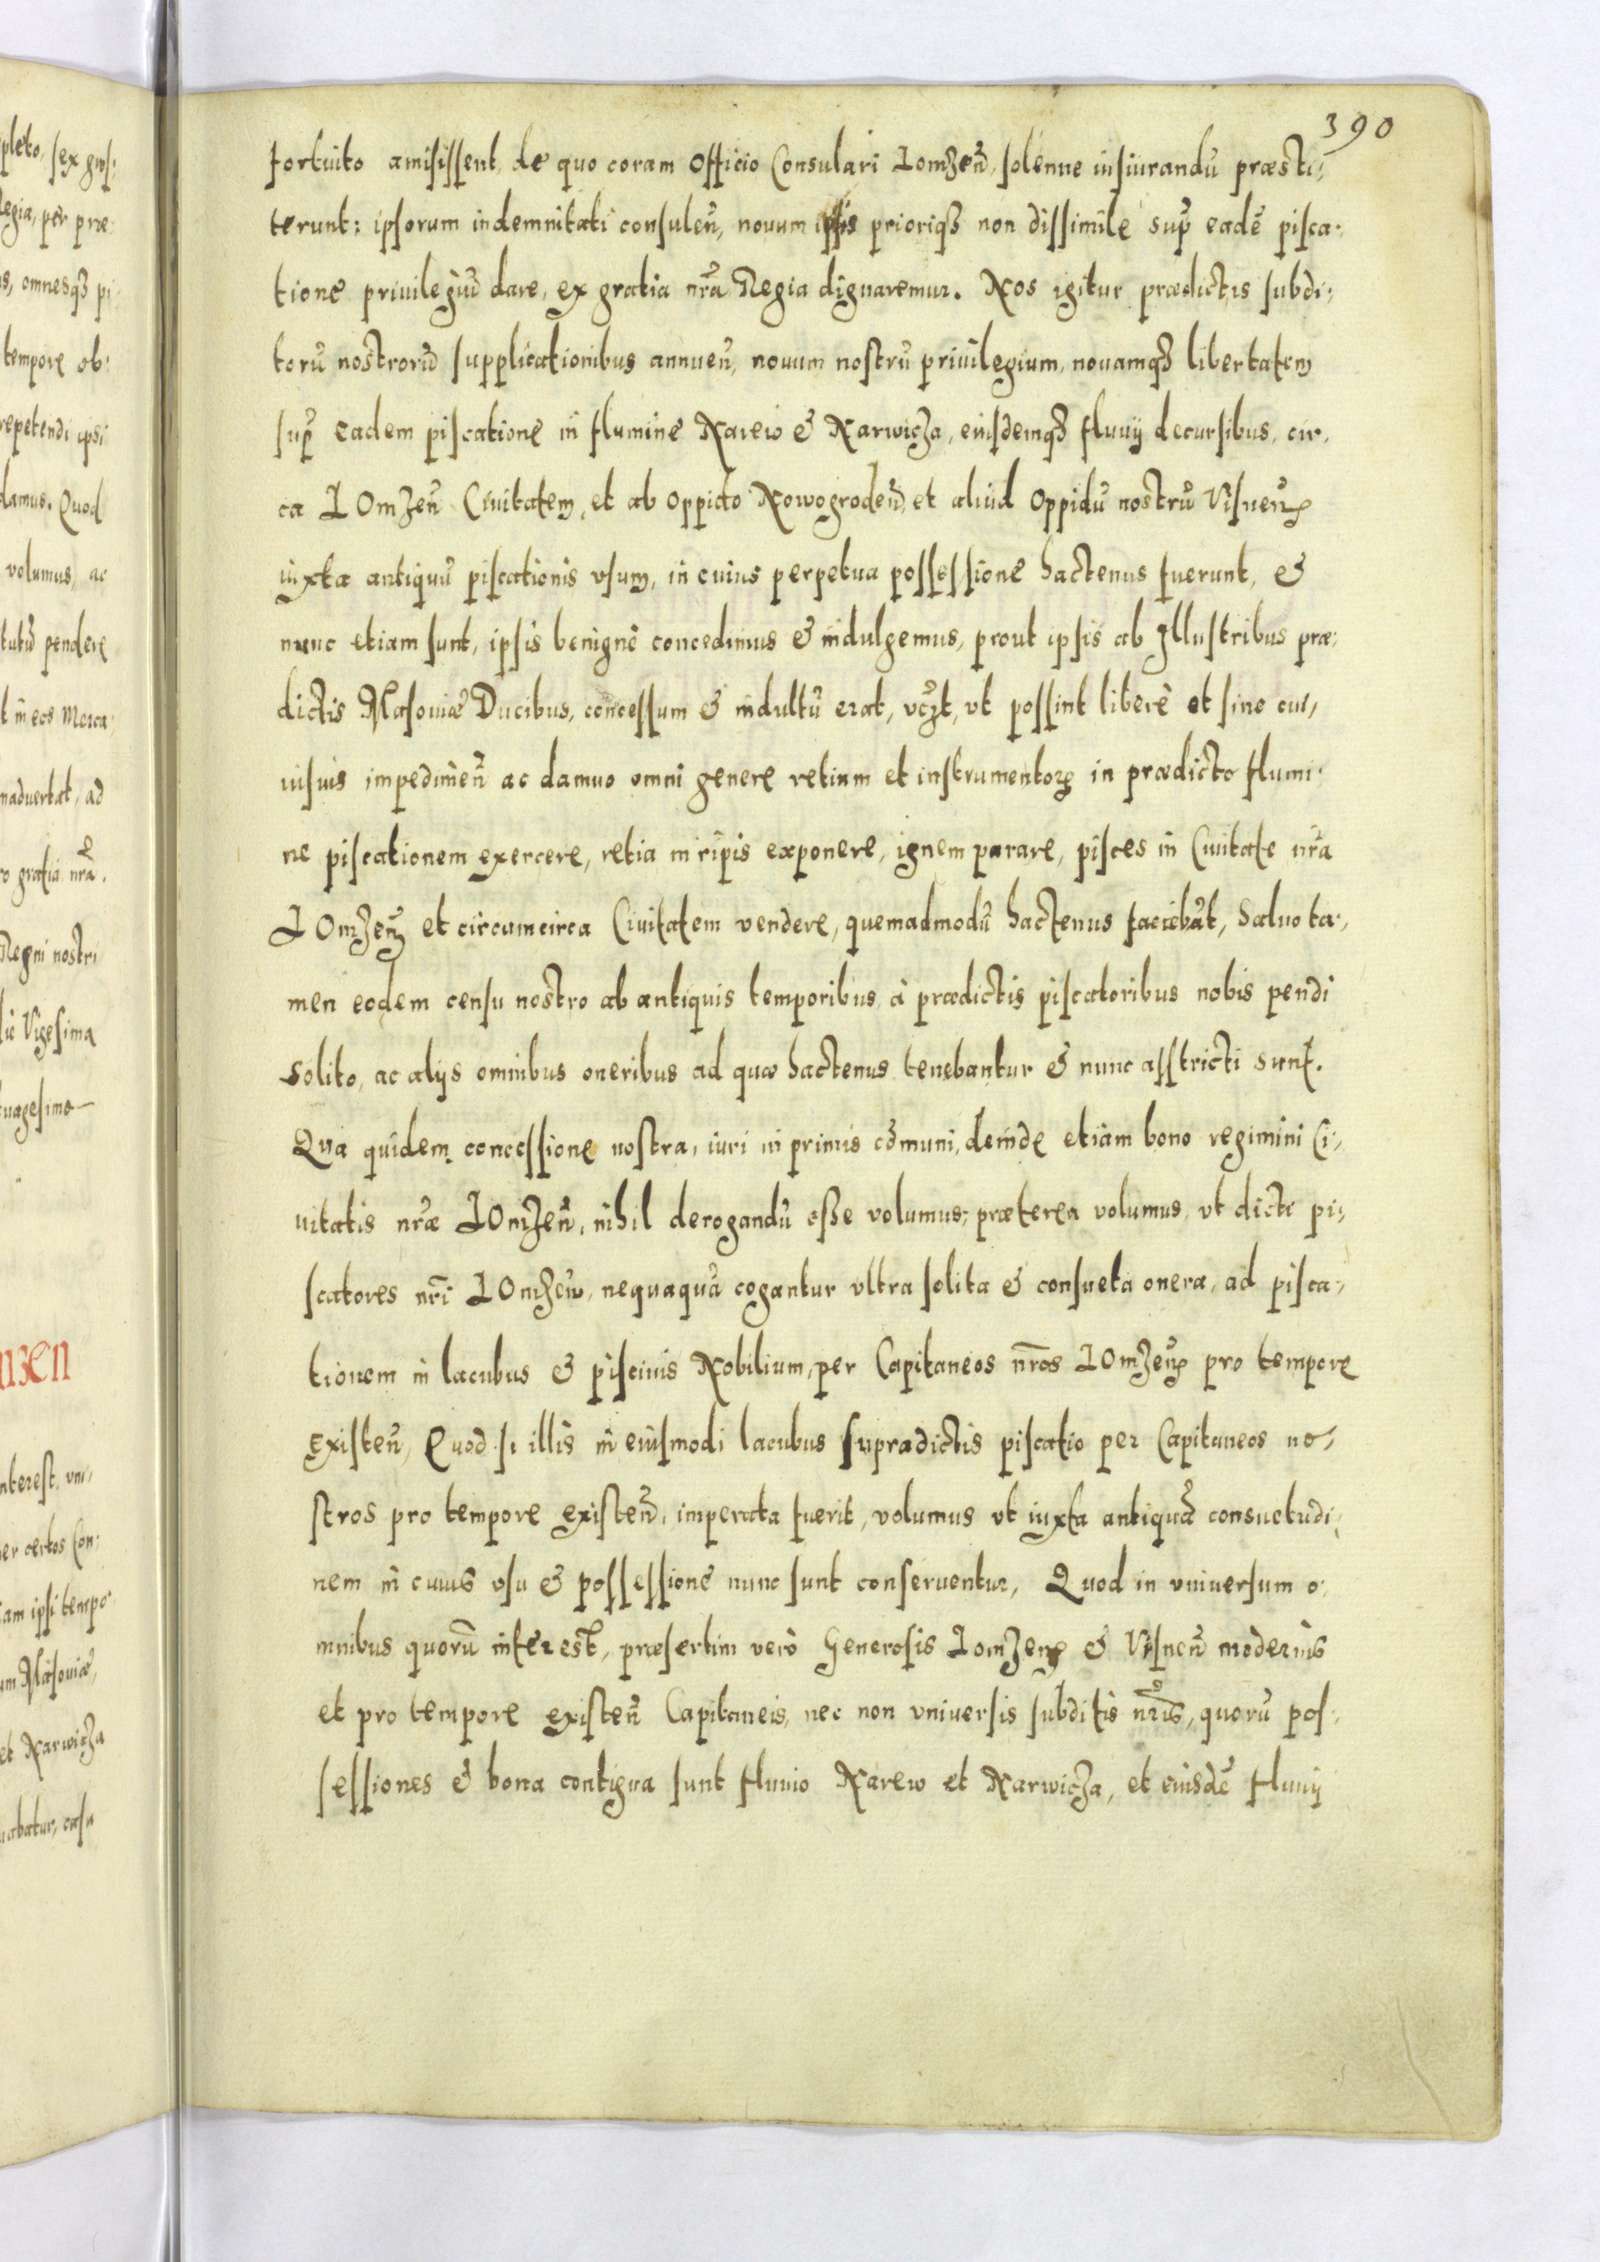 390
fortuito amisissent, de quo coram Officio Consulari Lomzeñ, solenne iusiurandū præsti,
terunt: ipsorum indemnitati consuleñ, nouum ipsis prioriqʒ non dissimile sup̃ eadē pisca.
tione priuilegiū dare, ex gratia nr̃a Regia dignaremur. Nos igitur prædictis subdi.
torū nostrorū supplicationibus annueñ, nouum nostrū priuilegium, nouamqʒ libertatem
sup̃ eadem piscatione in flumine Narew & Narwicza, eiusdemqʒ fluuij decursibus, cir.
ca LOmzeñ Ciuitatem, et ab oppido Nowogrodeñ, et aliud Oppidū nostrū Visneñ
iuxta antiquū piscationis vsum, in cuius perpetua possessione hactenus fuerunt, &
nunc etiam sunt, ipsis benignè concedimus & indulgemus, prout ipsis ab Illustribus præ.
dictis Masouiæ Ducibus, concessum & indultū erat, vcʒt, vt possint liberè et sine cui,
uisuis impedimeñ ac damno omni genere retium et instrumentoꝝ in prædicto flumi.
ne piscationem exercere, retia in ripis exponere, ignem parare, pisces in Ciuitate nr̃a
LOmzeñ et circumcirca Ciuitatem vendere, quemadmodū hactenus faciebāt, saluo ta,
men eodem censu nostro ab antiquis temporibus, à prædictis piscatoribus nobis pendi
solito, ac alijs omnibus oneribus ad quæ hactenus tenebantur & nunc asstricti sunt.
Qua quidem concessione nostra, iuri in primis cōmuni, deinde etiam bono regimini Ci,
uitatis nr̃æ LOmzeñ, nihil derogandū esse volumus, præterea volumus, vt dicti pi,
scatores nr̃i LOmzeñ, nequaquā cogantur vltra solita & consueta onera, ad pisca,
tionem in lacubus & piscinis Nobilium, per Capitaneos nr̃os LOmzeñ pro tempore
existeñ, Quod si illis in eiusmodi lacubus supradictis piscatio per Capitaneos no,
stros pro tempore existeñ, imperata fuerit, volumus vt iuxta antiquā consuetudi,
nem in cuius vsu & possessione nunc sunt conseruentur, Quod in vniuersum o.
mnibus quorū interest, præsertim verò Generosis Lomzeñ & Visneñ modernis
et pro tempore existeñ Capitaneis, nec non vniuersis subditis nr̃is, quorū pos.
sessiones & bona contigua sunt fluuio Narew et Narwicza, et eiusdē fluuij